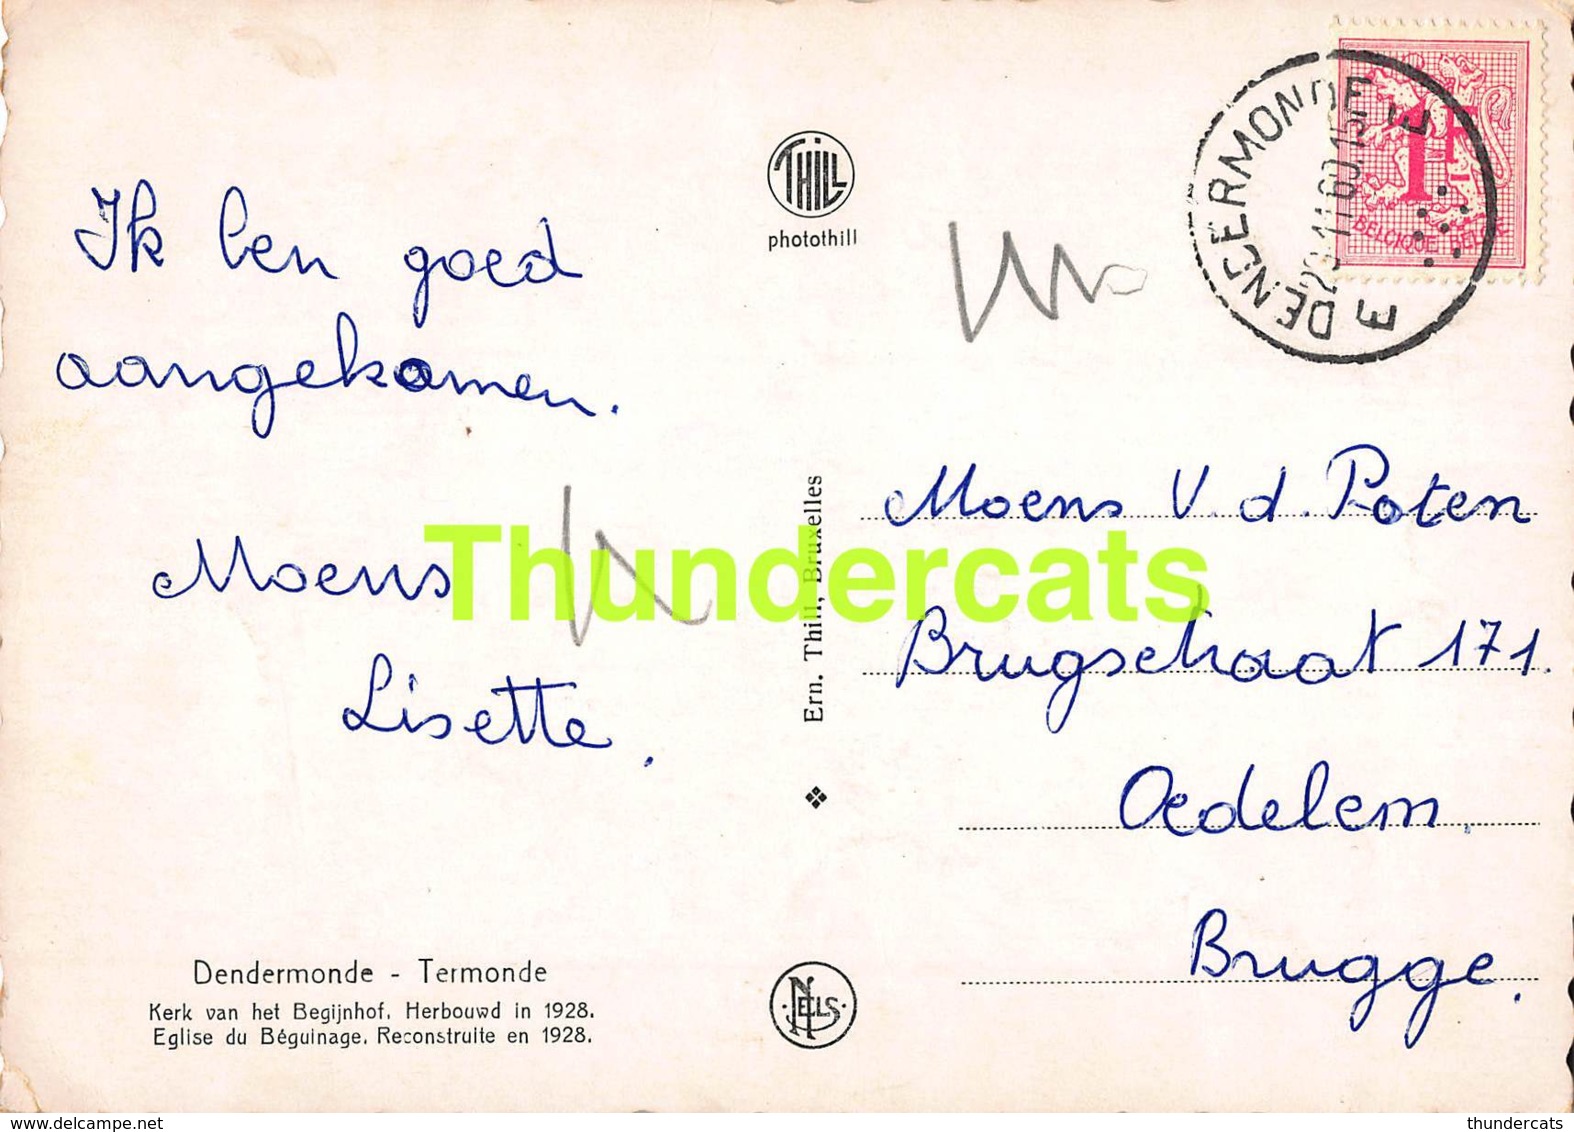 Ik ben goed
aangekomen.
Moens
Lisette.
Dendermonde - Termonde
Kerk van het Begijnhof. Herbouwd in 1928.
Eglise du Béguinage. Reconstruite en 1928.
THILL
photothill
Ern. Thill, Bruxelles
NELS
Thundercats
DENDERMONDE
E E
1F
BELGIQUE BELGIE
Moens V. d. Poten
Brugstraat 171.
Oedelem.
Brugge.
delcampe.net
thundercats